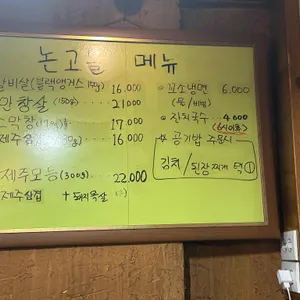 논고을 메뉴
갈비살(블랙앵거스 150g) 16,000
안창살 (150g) 21,000
막창 17,000
제주 16,000
제주모듬 (300g) 22,000
제주삼겹 + 돼지목살
꼬소냉면 6,000
(물/비빔)
잔치국수 4,600
(6시이후)
※ 공기밥 주문시
김치/된장찌개 택①